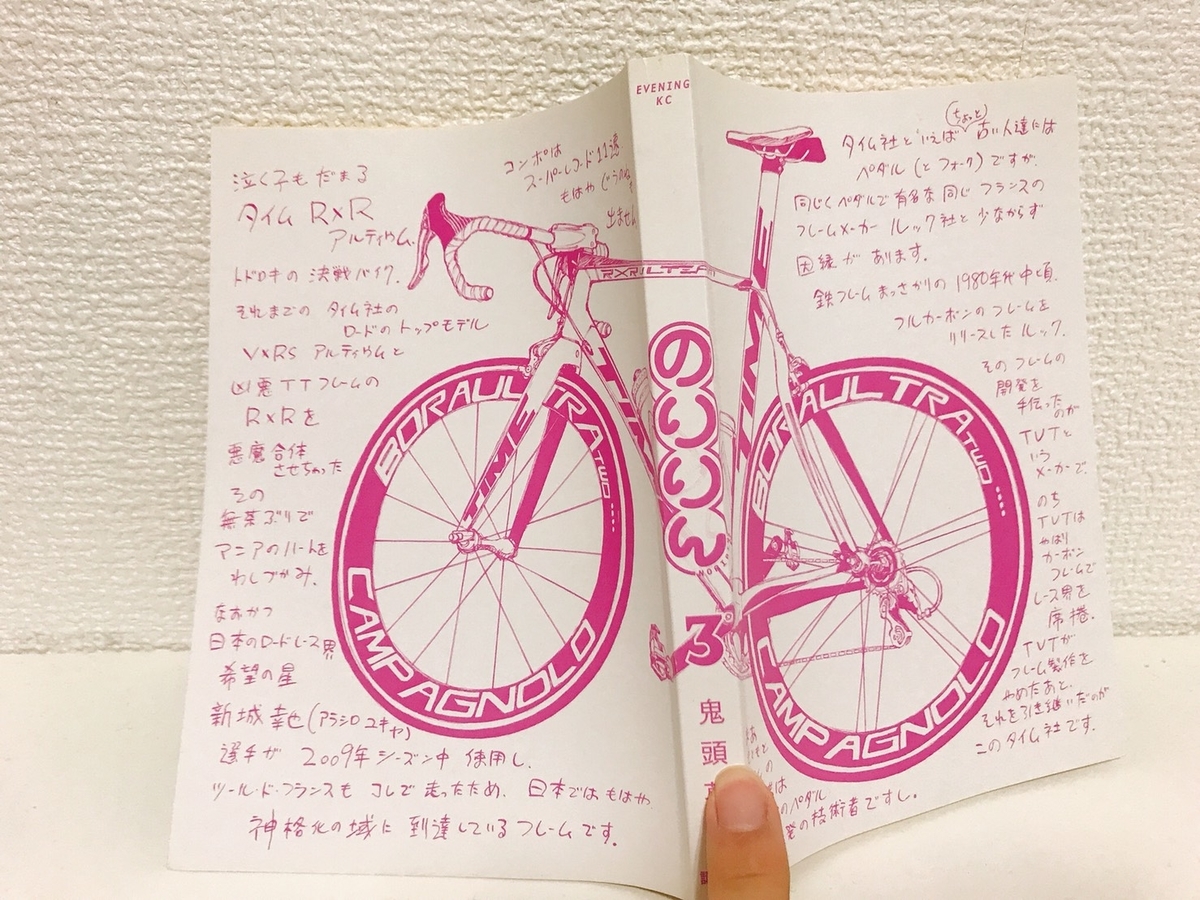 泣く子もだまる
タイム RXR
アルティウム.
トドロキの 決戦バイク.
それまでの タイム社の
ロードのトップモデル
VXRS アルティウムと
凶悪TTフレームの
RXRを
悪魔合体
させちゃった
その
無茶ぶりで
マニアのハートを
わしづかみ.
なおかつ
日本のロードレース界
希望の星
新城幸也(アラシロユキヤ)
選手が 2009年シーズン中 使用し.
ツール・ド・フランスも コレで 走ったため. 日本ではもはや
神格化の域に 到達しているフレームです.
コンポは
スーパーレコード11速
もはや
出ません
BORAULTRA TWO
CAMPAGNOLO
TIME
RXRULTEAM
EVENING
KC
のりりん
NORIRIN
3
鬼頭
TIME
BORAULTRA TWO
CAMPAGNOLO
タイム社といえば(ちょっと)古い人達には
ペダル(とフォーク)ですが.
同じくペダルで有名な同じフランスの
フレームメーカー ルック社と少なからず
因縁が あります.
鉄フレームまっさかりの1980年代中頃.
フルカーボンのフレームを
リリースしたルック.
そのフレームの
開発を
手伝った
のが
TVTと
いう
メーカーで.
のち
TVTは
やはり
カーボン
フレームで
レース界を
席捲.
TVTが
フレーム製作を
やめたあと.
それを引き継いだのが
このタイム社です.
のペダル
発の技術者ですし.